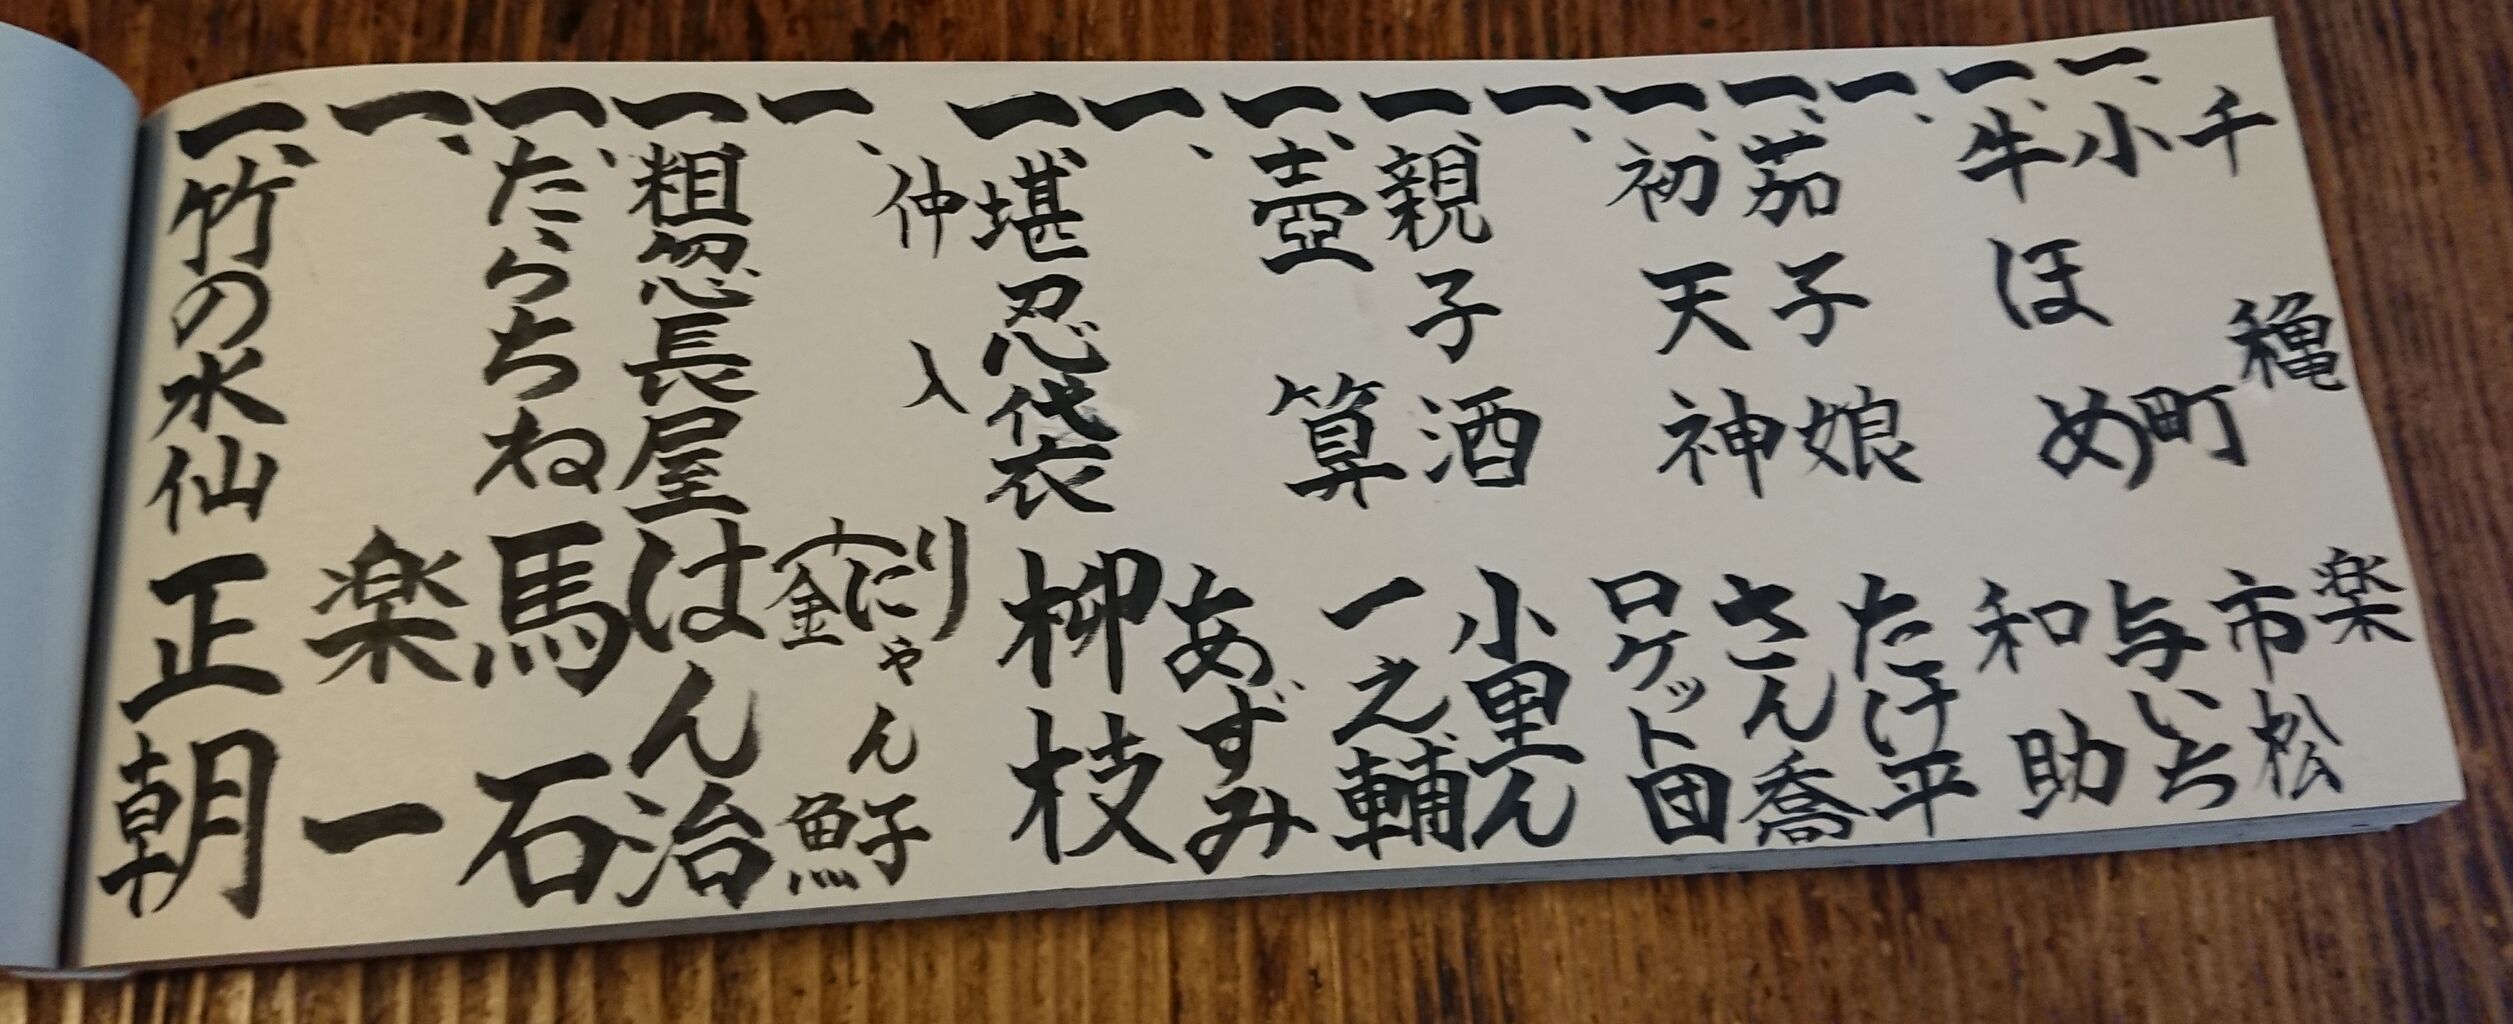 千穐楽
一、小町 市松
一、牛ほめ 与いち
一、 和助
一、茄子娘 たけ平
一、初天神 さん喬
一、 ロケット団
一、親子酒 小里ん
一、壺算 一之輔
一、 あずみ
一、堪忍袋 柳枝
仲入り
一、 にゃん子 金魚
一、粗忽長屋 はん治
一、たらちね 馬石
一、 楽一
一、竹の水仙 正朝